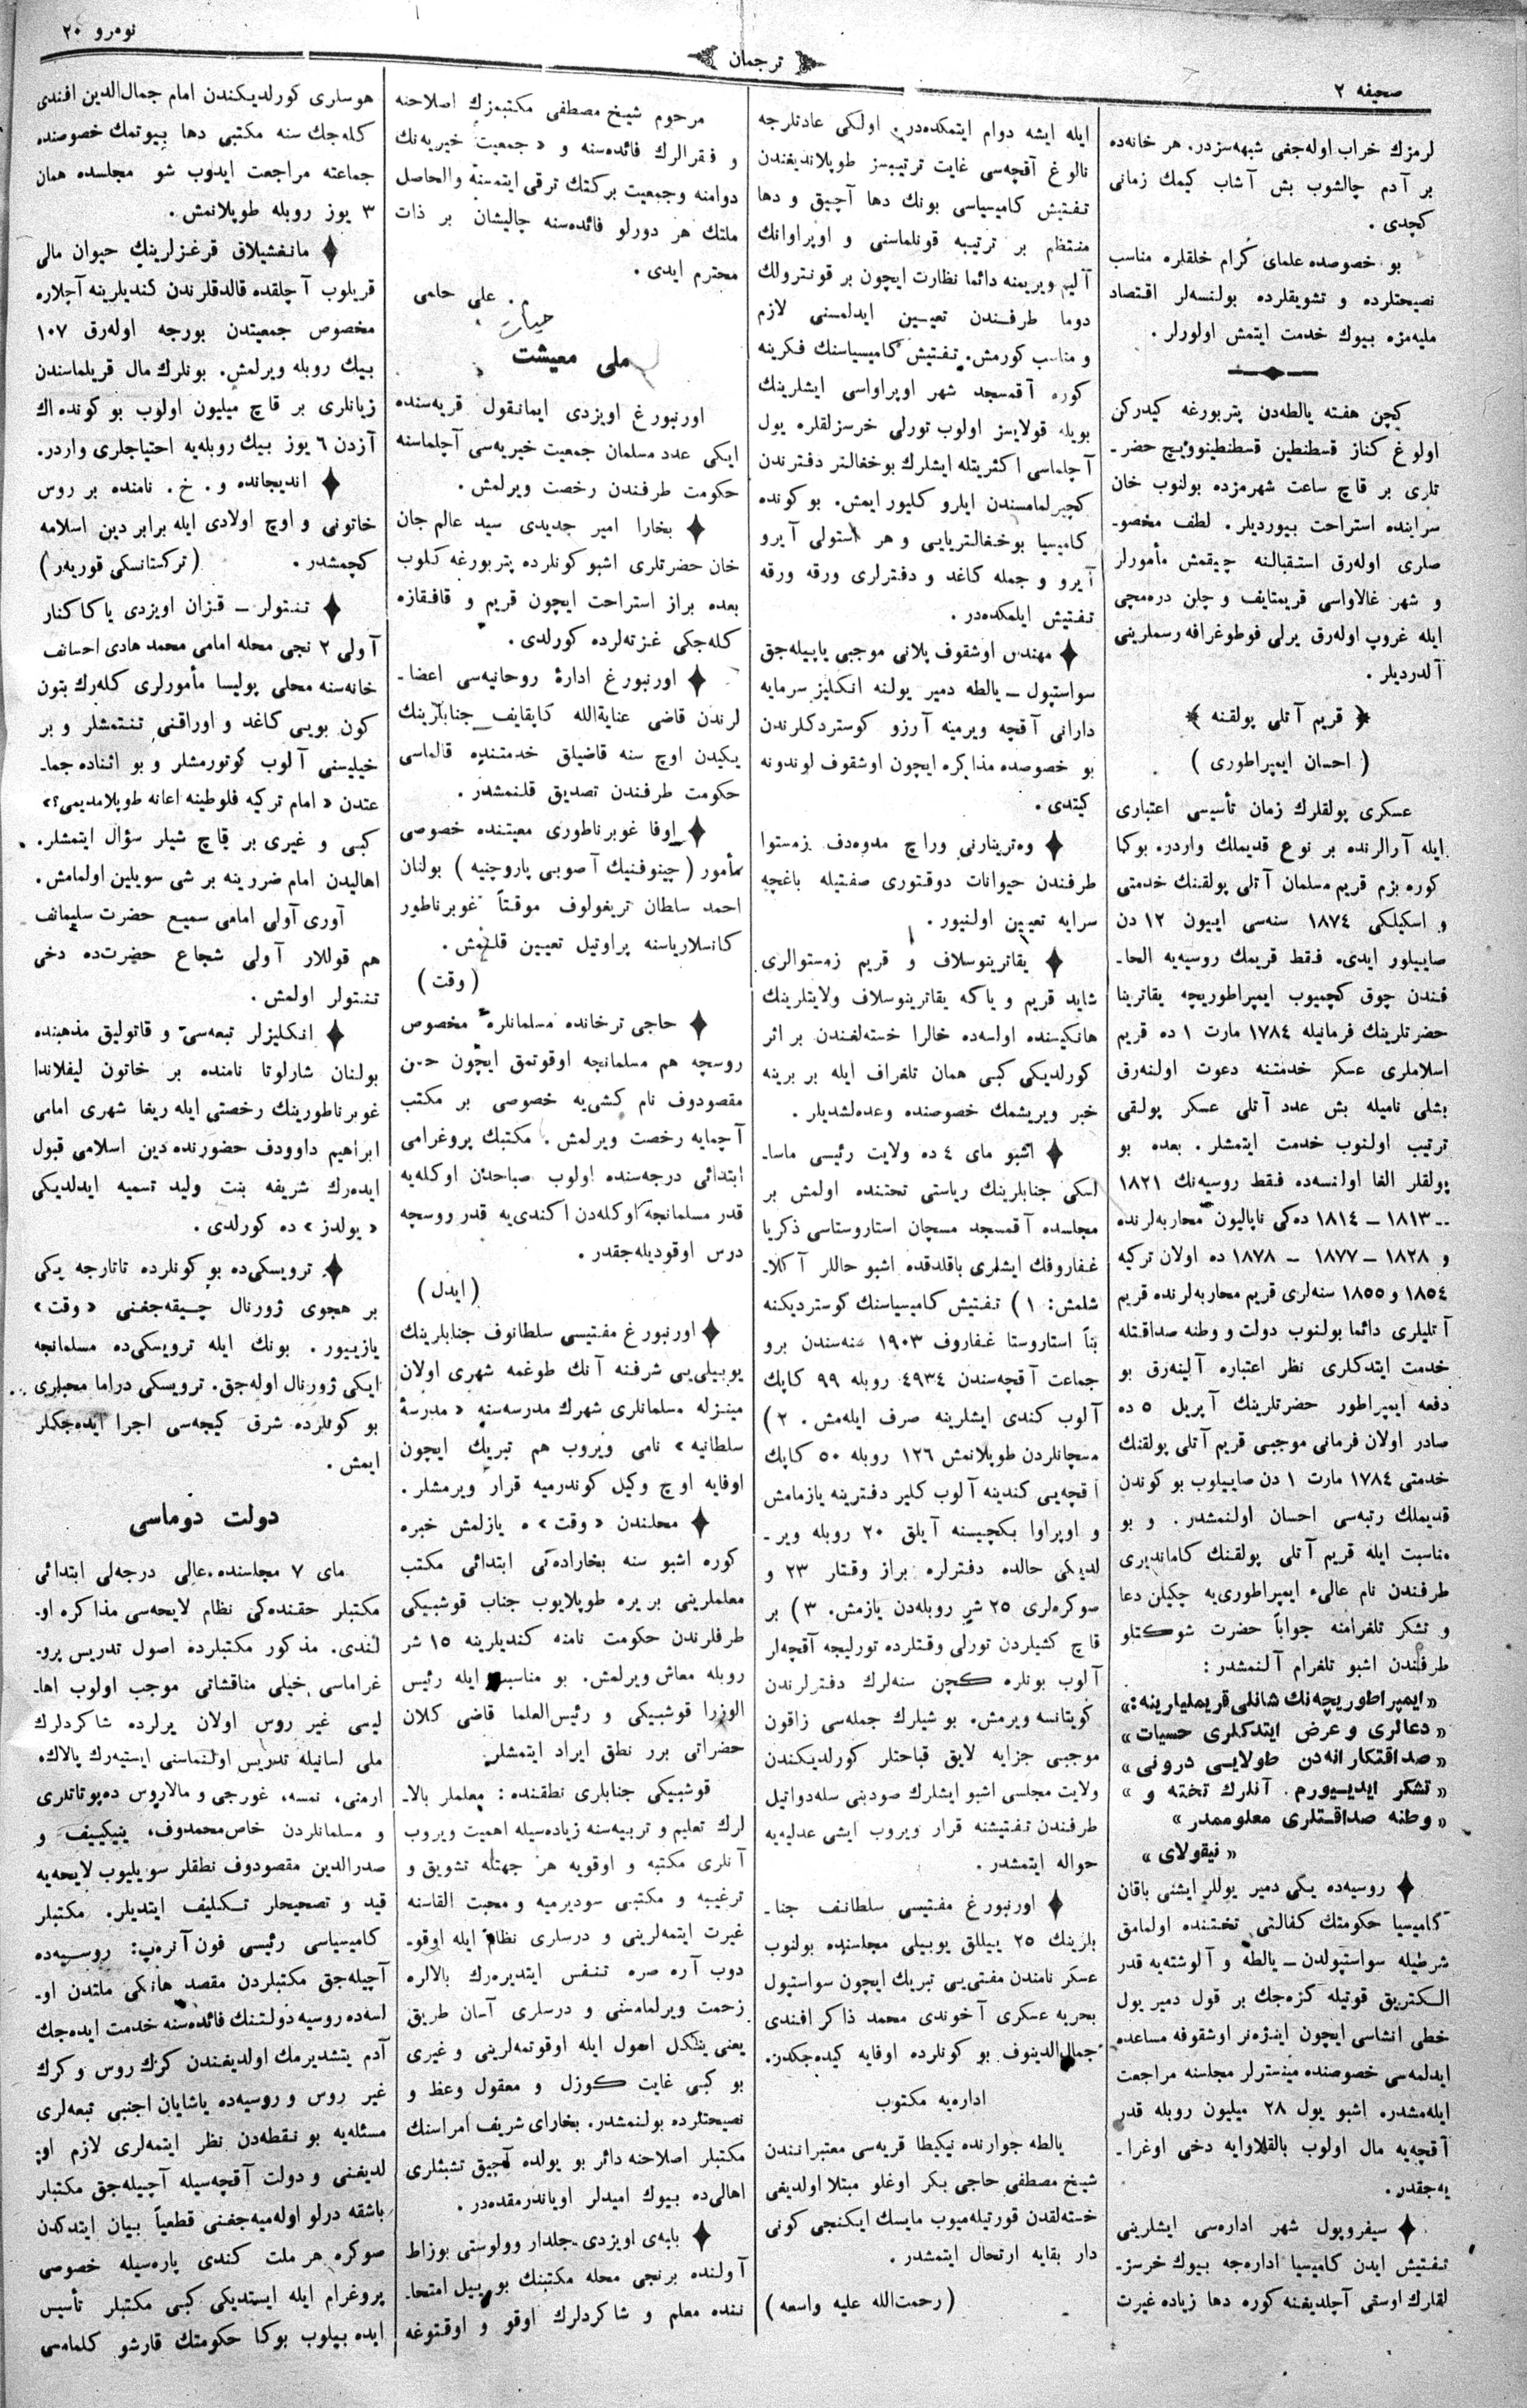 صحیفه ۲
ترجمان
نومرو ۲۰
لرمزك خراب اوله‌جغی شبهه‌سزدر. هر خانه‌ده
بر آدم چالشوب بش آشاب كیمك زمانی
كچدی.
بو خصوصده علمای كرام خلقلره مناسب
نصیحتلرده و تشویقلرده بولنسه‌لر اقتصاد
ملیه‌مزه بیوك خدمت ایتمش اولورلر.
كچن هفته یالطه‌دن پتربورغه كیدركن
اولوغ كناز قسطنطین قسطنطینوویچ حضر-
تلری بر قاچ ساعت شهرمزده بولنوب خان
سراینده استراحت بیوردیلر. لطف مخصو-
صلری اوله‌رق استقبالنه چیقمش مأمورلر
و شهر غالاواسی قریمتایف و چلن دره‌مجی
ایله غروپ اوله‌رق یرلی فوطوغرافه رسملرینی
آلدردیلر.
﴿ قریم آتلی پولقنه ﴾
( احسان ایمپراطوری )
عسكری پولقلرك زمان تأسیسی اعتباری
ایله آرالرنده بر نوع قدیملك واردر. بوكا
كوره بزم قریم مسلمان آتلی پولقنك خدمتی
و اسكیلكی ۱۸۷٤ سنه‌سی اییون ۱۲ دن
صاییلور ایدی. فقط قریمك روسیه‌یه الحا-
قندن چوق كچمیوب ایمپراطوریچه یقاترینا
حضرتلرینك فرمانیله ۱۷۸٤ مارت ۱ ده قریم
اسلاملری عسكر خدمتنه دعوت اولنه‌رق
بشلی نامیله بش عدد آتلی عسكر پولقی
ترتیب اولنوب خدمت ایتمشلر. بعده بو
پولقلر الغا اولنسه‌ده فقط روسیه‌نك ۱۸۲۱
-- ۱۸۱۳ – ۱۸۱٤ ده‌كی ناپالیون محاربه‌لرنده
و ۱۸۲۸ – ۱۸۷۷ – ۱۸۷۸ ده اولان تركیه
۱۸٥٤ و ۱۸٥٥ سنه‌لری قریم محاربه‌لرنده قریم
آتلیلری دائما بولنوب دولت و وطنه صداقتله
خدمت ایتدكلری نظر اعتباره آلینه‌رق بو
دفعه ایمپراطور حضرتلرینك آپریل ٥ ده
صادر اولان فرمانی موجبی قریم آتلی پولقنك
خدمتی ۱۷۸٤ مارت ۱ دن صاییلوب بو كوندن
قدیملك رتبه‌سی احسان اولنمشدر. و بو
مناسبت ایله قریم آتلی پولقنك كاماندیری
طرفندن نام عالیء ایمپراطوری‌یه چكیلن دعا
و تشكر تلغرامنه جواباً حضرت شوكتلو
طرفندن اشبو تلغرام آلنمشدر:
«ایمپراطوریچه‌نك شانلی قریملیلرینه:»
« دعالری و عرض ایتدكلری حسیات»
«صداقتكارانه‌دن طولایی درونی»
« تشكر ایدیورم. آنلرك تخته و »
« وطنه صداقتلری معلوممدر»
« نیقولای »
♦ روسیه‌ده یكی دمیر یوللر ایشنی باقان
كامیسیا حكومتك كفالتی تختنده اولمامق
شرطیله سواستپولدن – یالطه و آلوشته‌یه قدر
الكتریق قوتیله كزه‌جك بر قول دمیر یول
خطی انشاسی ایچون اینژه‌نر اوشقوفه مساعده
ایدلمه‌سی خصوصنده مینسترلر مجلسنه مراجعت
ایله‌مشدر. اشبو یول ۲۸ میلیون روبله قدر
آقچه‌یه مال اولوب بالقلاوایه دخی اوغرا-
یه‌جقدر.
♦ سیفروپول شهر اداره‌سی ایشلرینی
تفتیش ایدن كامیسیا اداره‌جه بیوك خرسز-
لقلرك اوستی آچلدیغنه كوره دها زیاده غیرت
ایله ایشه دوام ایتمكده‌در. اولكی عادتلرجه
نالوغ آقچه‌سی غایت ترتیبسز طوپلاندیغندن
تفتیش كامیسیاسی بونك دها آچیق و دها
منتظم بر ترتیبه قونلماسنی و اوپراوانك
آلیم ویریمنه دائما نظارت ایچون بر قونترولك
دوما طرفندن تعیین ایدلمسنی لازم
و مناسب كورمش. تفتیش كامیسیاسنك فكرینه
كوره آقمسجد شهر اوپراواسی ایشلرینك
بویله قولایسز اولوب تورلی خرسزلقلره یول
آچلماسی اكثریتله ایشلرك بوخغالتر دفترندن
كچیرلمامسندن ایلرو كلیور ایمش. بو كونده
كامیسیا بوخغالتریایی و هر استولی آیرو
آیرو و جمله كاغد و دفترلری ورقه ورقه
تفتیش ایلمكده‌در.
♦ مهندس اوشقوف پلانی موجبی یاپیله‌جق
سواستپول – یالطه دمیر یولنه انكلیز سرمایه
دارانی آقچه ویرمیه آرزو كوستردكلرندن
بو خصوصده مذاكره ایچون اوشقوف لوندونه
كیتدی.
♦ وه‌ترینارنی وراچ مدوه‌دف زمستوا
طرفندن حیوانات دوقتوری صفتیله باغچه
سرایه تعیین اولنیور.
♦ یقاترینوسلاف و قریم زمستوالری
شاید قریم و یاكه یقاترینوسلاف ولایتلرینك
هانكیسنده اولسه‌ده خالرا خسته‌لغندن بر اثر
كورلدیكی كبی همان تلغراف ایله بر برینه
خبر ویریشمك خصوصنده وعده‌لشدیلر.
♦ اشبو مای ٤ ده ولایت رئیسی ماسا-
لسكی جنابلرینك ریاستی تحتنده اولمش بر
مجلسده آقمسجد مسچان استاروستاسی ذكریا
غفاروفك ایشلری باقلدقده اشبو حاللر آكلا-
شلمش: ۱) تفتیش كامیسیاسنك كوستردیكنه
بناً استاروستا غفاروف ۱۹۰۳ سنه‌سندن برو
جماعت آقچه‌سندن ٤۹۳٤ روبله ۹۹ كاپك
آلوب كندی ایشلرینه صرف ایله‌مش. ۲)
مسچانلردن طوپلانمش ۱۲٦ روبله ٥۰ كاپك
آقچه‌یی كندینه آلوب كلیر دفترینه یازمامش
و اوپراوا بكچیسنه آیلق ۲۰ روبله ویر-
لدیكی حالده دفترلره براز وقتلر ۲۳ و
صوكره‌لری ۲٥ شر روبله‌دن یازمش. ۳) بر
قاچ كشیلردن تورلی وقتلرده تورلیجه آقچه‌لر
آلوب بونلره كچن سنه‌لرك دفترلرندن
كویتانسه ویرمش. بو شیلرك جمله‌سی زاقون
موجبی جزایه لایق قباحتلر كورلدیكندن
ولایت مجلسی اشبو ایشلرك صودبنی سله‌دواتیل
طرفندن تفتیشنه قرار ویروب ایشی عدلیه‌یه
حواله ایتمشدر.
♦ اورنبورغ مفتیسی سلطانف جنا-
بلرینك ۲٥ ییللق یوبیلی مجلسنده بولنوب
عسكر نامندن مفتی‌یی تبریك ایچون سواستپول
بحریه عسكری آخوندی محمد ذاكر افندی
جمال‌الدینوف بو كونلرده اوفایه كیده‌جكدر.
اداره‌یه مكتوب
یالطه جوارنده نیكیطا قریه‌سی معتبرانندن
شیخ مصطفی حاجی بكر اوغلو مبتلا اولدیغی
خسته‌لقدن قورتیله‌میوب مایسك ایكنجی كونی
دار بقایه ارتحال ایتمشدر.
(رحمت‌الله علیه واسعه)
مرحوم شیخ مصطفی مكتبمزك اصلاحنه
و فقرالرك فائده‌سنه و «جمعیت خیریه‌نك
دوامنه وجمعیت بركتك ترقی ایتمسنه والحاصل
ملتك هر دورلو فائده‌سنه چالیشان بر ذات
محترم ایدی.
م. علی حامی
حیات
ملی معیشت
اورنبورغ اویزدی ایمانقول قریه‌سنده
ایكی عدد مسلمان جمعیت خیریه‌سی آچلماسنه
حكومت طرفندن رخصت ویرلمش.
♦ بخارا امیر جدیدی سید عالم جان
خان حضرتلری اشبو كونلرده پتربورغه كلوب
بعده براز استراحت ایچون قریم و قافقازه
كله‌جكی غزته‌لرده كورلدی.
♦ اورنبورغ ادارهٔ روحانیه‌سی اعضا-
لرندن قاضی عنایةالله كاپقایف جنابلرینك
یكیدن اوچ سنه قاضیلق خدمتنده قالماسی
حكومت طرفندن تصدیق قلنمشدر.
♦ اوفا غوبرناطوری معیتنده خصوصی
مأمور (چینوفنیك آصوبی پاروچنیه) بولنان
احمد سلطان تریغولوف موقتاً غوبرناطور
كانسلاریاسنه پراوتیل تعیین قلنمش.
(وقت)
♦ حاجی ترخانده مسلمانلره مخصوص
روسچه هم مسلمانجه اوقوتمق ایچون حسن
مقصودوف نام كشی‌یه خصوصی بر مكتب
آچمایه رخصت ویرلمش. مكتبك پروغرامی
ابتدائی درجه‌سنده اولوب صباحدن اوكله‌یه
قدر مسلمانجه اوكله‌دن اكندی‌یه قدر روسچه
درس اوقودیله‌جقدر.
(ایدل)
♦ اورنبورغ مفتیسی سلطانوف جنابلرینك
یوبیلی‌یی شرفنه آنك طوغمه شهری اولان
مینزله مسلمانلری شهرك مدرسه‌سنه «مدرسهٔ
سلطانیه» نامی ویروب هم تبریك ایچون
اوفایه اوچ وكیل كوندرمیه قرار ویرمشلر.
♦ محلندن «وقت»ه یازلمش خبره
كوره اشبو سنه بخاراده‌كی ابتدائی مكتب
معلملرینی بر یره طوپلایوب جناب قوشبیكی
طرفلرندن حكومت نامنه كندیلرینه ۱٥ شر
روبله معاش ویرلمش. بو مناسبت ایله رئیس
الوزرا قوشبیكی و رئیس‌العلما قاضی كلان
حضراتی برر نطق ایراد ایتمشلر.
قوشبیكی جنابلری نطقنده: معلملر بالا-
لرك تعلیم و تربیه‌سنه زیاده‌سیله اهمیت ویروب
آنلری مكتبه و اوقویه هر جهتله تشویق و
ترغیبه و مكتبی سودیرمیه و محبت القاسنه
غیرت ایتمه‌لرینی و درسلری نظام ایله اوقو-
دوب آره صره تنفس ایتدیره‌رك بالالره
زحمت ویرلمامسنی و درسلری آسان طریق
یعنی یتكل اصول ایله اوقوتمه‌لرینی و غیری
بو كبی غایت كوزل و معقول وعظ و
نصیحتلرده بولنمشدر. بخارای شریف امراسنك
مكتبلر اصلاحنه دائر بو یولده آچیق تشبثلری
اهالی‌ده بیوك امیدلر اویاندرمقده‌در.
♦ بابه‌ی اویزدی جلدار وولوستی بوزاط
آولنده برنجی محله مكتبنك بو ییل امتحا-
ننده معلم و شاكردلرك اوقو و اوقتوغه
هوسلری كورلدیكندن امام جمال‌الدین افندی
كله‌جك سنه مكتبی دها بیوتمك خصوصنده
جماعته مراجعت ایدوب شو مجلسده همان
۳ یوز روبله طوپلانمش.
♦ مانغشیلاق قرغزلرینك حیوان مالی
قریلوب آچلقده قالدقلرندن كندیلرینه آچلره
مخصوص جمعیتدن بورجه اوله‌رق ۱۰۷
بیك روبله ویرلمش. بونلرك مال قریلماسندن
زیانلری بر قاچ میلیون اولوب بو كونده اك
آزدن ٦ یوز بیك روبله‌یه احتیاجلری واردر.
♦ اندیجانده و. خ. نامنده بر روس
خاتونی و اوچ اولادی ایله برابر دین اسلامه
كچمشدر. (تركستانسكی قوریه‌ر)
♦ تنتولر – قزان اویزدی یاكا كنار
آولی ۲ نجی محله امامی محمد هادی احسانف
خانه‌سنه محلی پولیسا مأمورلری كله‌رك بتون
كون بویی كاغد و اوراقنی تنتمشلر و بر
خیلیسنی آلوب كوتورمشلر و بو اثناده جما-
عتدن «امام تركیه فلوطینه اعانه طوپلامدیمی؟»
كبی و غیری بر قاچ شیلر سؤال ایتمشلر.
اهالیدن امام ضررینه بر شی سویلین اولمامش.
آوری آولی امامی سمیع حضرت سلیمانف
هم قوللار آولی شجاع حضرت‌ده دخی
تنتولر اولمش.
♦ انكلیزلر تبعه‌سی و قاتولیق مذهبنده
بولنان شارلوتا نامنده بر خاتون لیفلاندا
غوبرناطورینك رخصتی ایله ریغا شهری امامی
ابراهیم داوودف حضورنده دین اسلامی قبول
ایده‌رك شریفه بنت ولید تسمیه ایدلدیكی
«یولدز» ده كورلدی.
♦ ترویسكی‌ده بو كونلرده تاتارجه یكی
بر هجوی ژورنال چیقه‌جغنی «وقت»
یازییور. بونك ایله ترویسكی‌ده مسلمانجه
ایكی ژورنال اوله‌جق. ترویسكی دراما محبلری
بو كونلرده شرق كیچه‌سی اجرا ایده‌جكلر
ایمش.
دولت دوماسی
مای ۷ مجلسنده عالی درجه‌لی ابتدائی
مكتبلر حقنده‌كی نظام لایحه‌سی مذاكره او-
لندی. مذكور مكتبلرده اصول تدریس پرو-
غراماسی خیلی مناقشاتی موجب اولوب اها-
لیسی غیر روس اولان یرلرده شاكردلرك
ملی لسانیله تدریس اولنماسنی ایستیه‌رك پالاك،
ارمنی، نمسه، غورجی و مالاروس ده‌پوتاتلری
و مسلمانلردن خاص‌محمدوف، ینیكییف و
صدرالدین مقصودوف نطقلر سویلیوب لایحه‌یه
قید و تصحیحلر تكلیف ایتدیلر. مكتبلر
كامیسیاسی رئیسی فون آنره‌پ: روسیه‌ده
آچیله‌جق مكتبلردن مقصد هانكی ملتدن او-
لسه‌ده روسیه دولتنك فائده‌سنه خدمت ایده‌جك
آدم یتشدیرمك اولدیغندن كرك روس و كرك
غیر روس و روسیه‌ده یاشایان اجنبی تبعه‌لری
مسئله‌یه بو نقطه‌دن نظر ایتمه‌لری لازم او-
لدیغنی و دولت آقچه‌سیله آچیله‌جق مكتبلر
باشقه درلو اوله‌میه‌جغنی قطعیاً بیان ایتدكدن
صوكره هر ملت كندی پاره‌سیله خصوصی
پروغرام ایله ایستدیكی كبی مكتبلر تأسیس
ایده بیلوب بوكا حكومتك قارشو كلمامسی